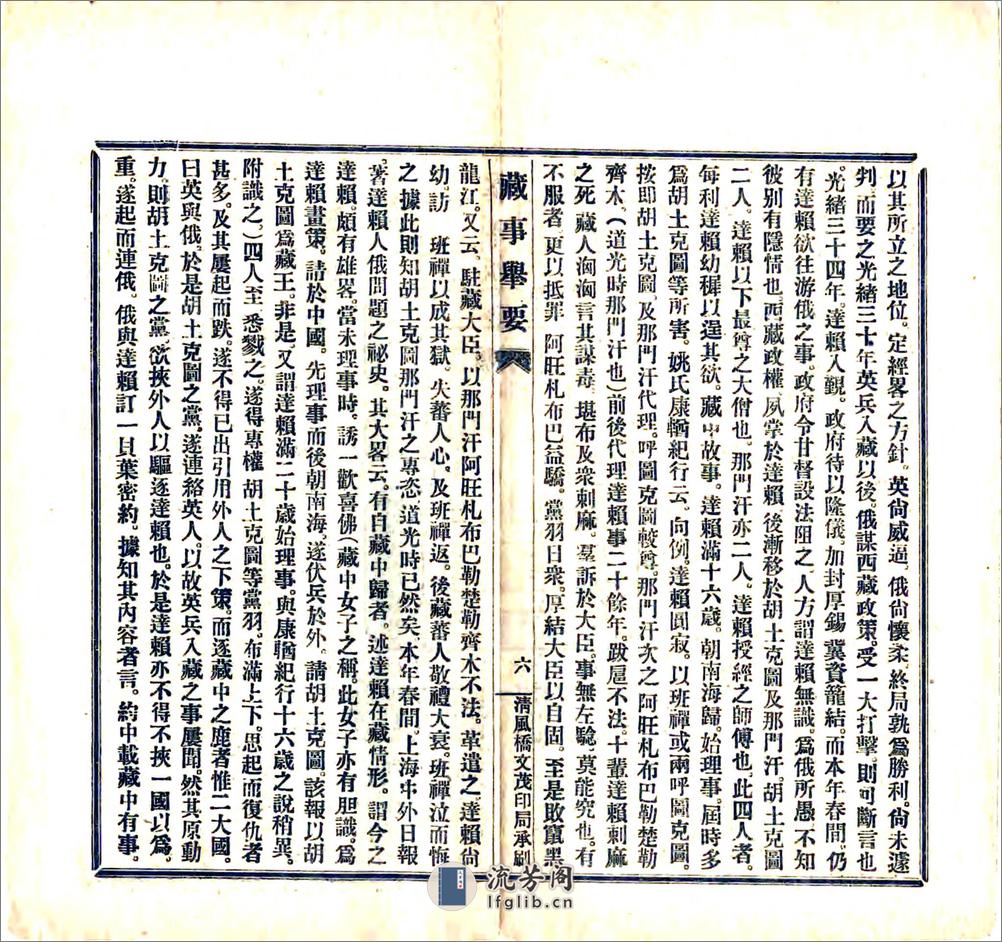 以其所立之地位。定經畧之方針。英尙威逼。俄尙懷柔。終局孰爲勝利。尙未遽
判。而要之光緒三十年英兵入藏以後。俄謀西藏政策。受一大打擊。則可斷言也
光緒三十四年。達賴入覲。政府待以隆儀。加封厚錫。冀資籠結。而本年春間。仍
有達賴欲往游俄之事。政府令甘督設法阻之。人方謂達賴無識。爲俄所愚。不知
彼別有隱情也。西藏政權。夙掌於達賴。後漸移於胡土克圖及那門汗。胡土克圖
二人。達賴以下最尊之大僧也。那門汗亦二人。達賴授經之師傅也。此四人者。
每利達賴幼穉以逞其欲。藏中故事。達賴滿十六歲。朝南海歸。始理事。屆時多
爲胡土克圖等所害。姚氏康輶紀行云。向例。達賴圓寂。以班禪或兩呼圖克圖。
按卽胡土克圖。及那門汗代理。呼圖克圖較尊。那門汗次之阿旺札布巴勒楚勒
齊木。(道光時那門汗也)前後代理達賴事二十餘年。跋扈不法。十輩達賴剌麻
之死藏人洶洶言其謀毒。堪布及衆剌麻。羣訴於大臣。事無左騐。莫能究也。有
不服者。更以抵罪阿旺札布巴益驕。黨羽日衆。厚結大臣以自固。至是敗竄黑
藏事舉要
六
淸風橋文茂印局承刷
龍江。又云。駐藏大臣。以那門汗阿旺札布巴勒楚勒齊木不法。革遣之。達賴尙
幼。訪班禪以成其獄。失蕃人心。及班禪返。後藏蕃人敬禮大衰。班禪泣而悔
之據此則知胡土克圖那門汗之專恣。道光時已然矣。本年春間。上海中外日報
著達賴人俄問題之祕史。其大畧云。有自藏中歸者。述達賴在藏情形。謂今之
達賴。頗有雄畧。當未理事時。誘一歡喜佛(藏中女子之稱。此女子亦有胆識。爲
達賴畫策。請於中國。先理事而後朝南海。遂伏兵於外。請胡土克圖。該報以胡
土克圖爲藏王。非是。又謂達賴滿二十歲始理事。與康輶紀行十六歲之說稍異。
附識之。)四人至。悉戮之。遂得專權胡土克圖等黨羽。布滿上下。思起而復仇者
甚多。及其屢起而跌。遂不得已出引用外人之下策。而逐藏中之鹿者惟二大國。
曰英與俄。於是胡土克圖之黨。遂連絡英人。以故英兵入藏之事屢聞。然其原動
力。則胡土克圖之黨。欲挾外人以驅逐達賴也。於是達賴亦不得不挾一國以爲
重。遂起而連俄。俄與達賴訂一貝葉密約。據知其內容者言。約中載藏中有事。
流芳阁
lfglib.cn